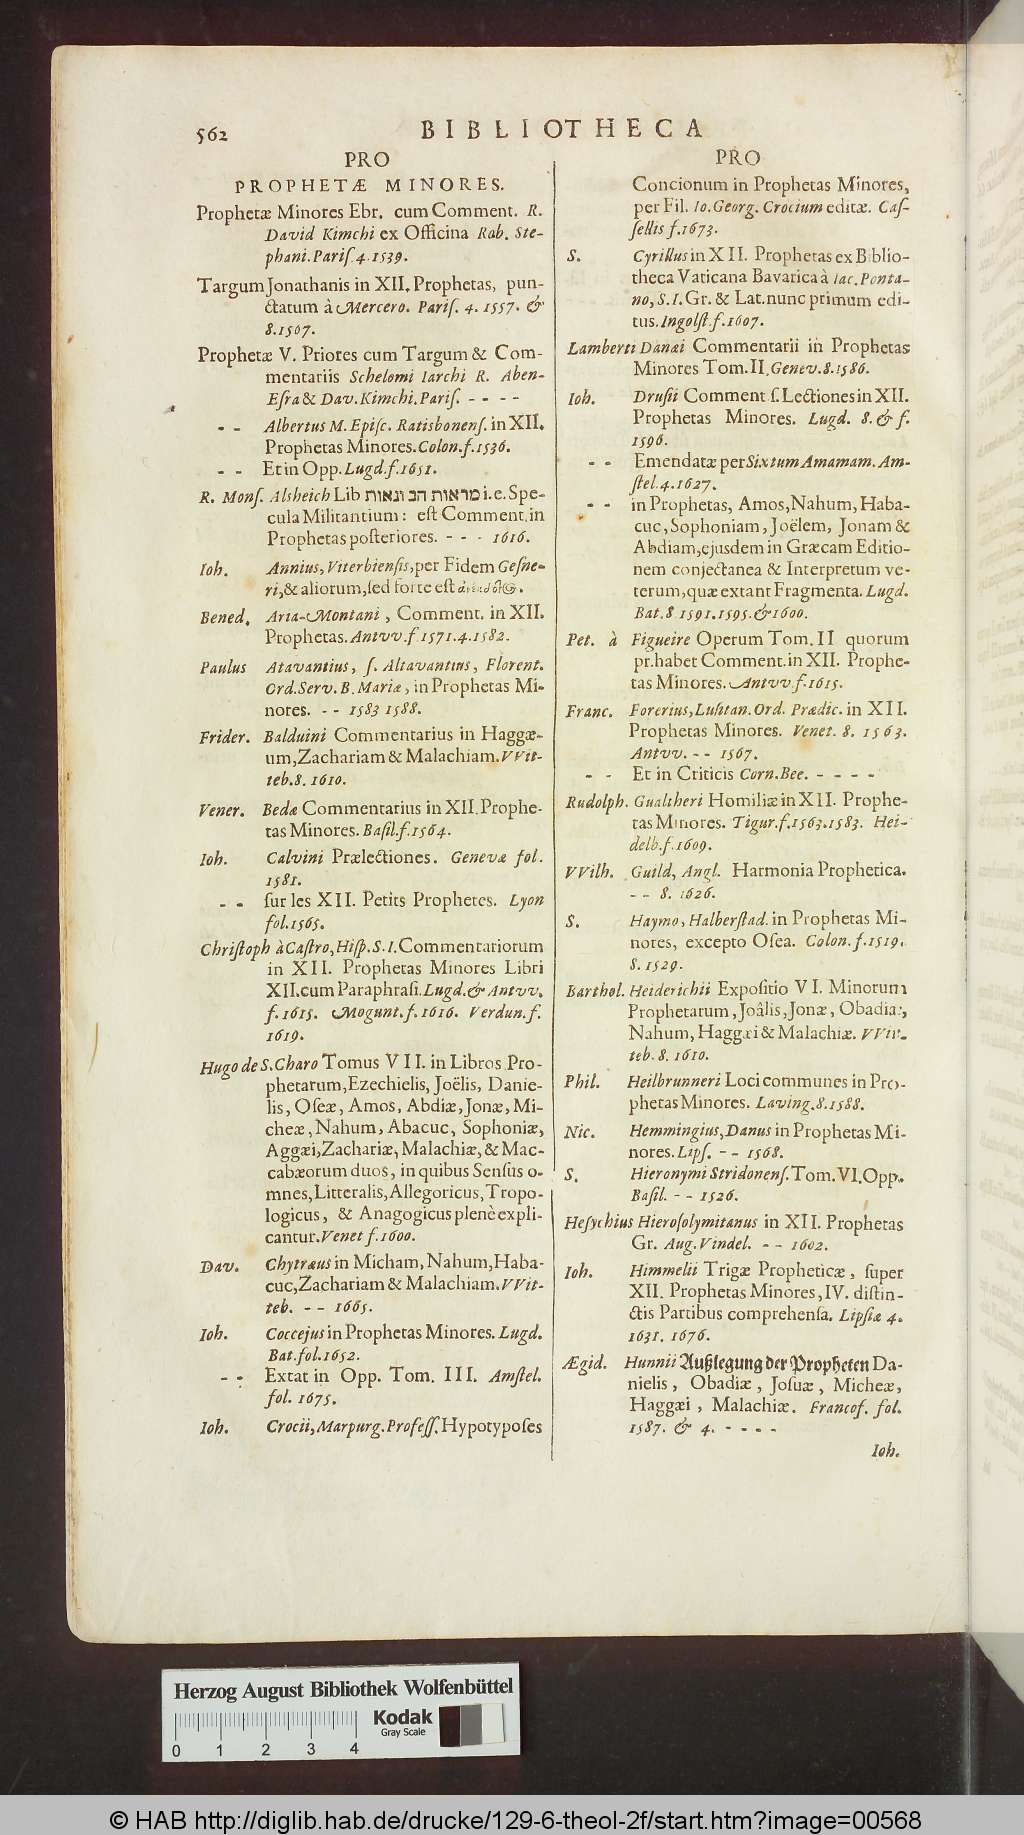 562
BIBLIOTHECA
PRO
PROPHETÆ MINORES.
Prophetæ Minores Ebr. cum Comment. R.
David Kimchi ex Officina Rab. Ste-
phani. Pariſ. 4. 1539.
Targum Jonathanis in XII. Prophetas, pun-
ctatum à Mercero. Pariſ. 4. 1557. &
8. 1567.
Prophetæ V. Priores cum Targum & Com-
mentariis Schelomi Iarchi R. Aben-
Eſra & Dav. Kimchi. Pariſ. - - - -
- - Albertus M. Epiſc. Ratisbonenſ. in XII.
Prophetas Minores. Colon. f. 1536.
- - Et in Opp. Lugd. f. 1651.
R. Monſ. Alsheich Lib מראות הב ונאות i.e. Spe-
cula Militantium: eſt Comment. in
Prophetas poſteriores. - - - 1616.
Ioh. Annius, Viterbienſis, per Fidem Geſne-
ri, & aliorum, ſed forte eſt
Bened. Aria-Montani, Comment. in XII.
Prophetas. Antvv. f 1571. 4. 1582.
Paulus Atavantius, ſ. Altavantius, Florent.
Ord. Serv. B. Mariæ, in Prophetas Mi-
nores. - - 1583 1588.
Frider. Balduini Commentarius in Haggæ-
um, Zachariam & Malachiam. VVit-
teb. 8. 1610.
Vener. Bedæ Commentarius in XII. Prophe-
tas Minores. Baſil. f. 1564.
Ioh. Calvini Prælectiones. Genevæ fol.
1581.
- - ſur les XII. Petits Prophetes. Lyon
fol. 1565.
Chriſtoph à Caſtro, Hiſp. S. I. Commentariorum
in XII. Prophetas Minores Libri
XII. cum Paraphraſi. Lugd. & Antvv.
f. 1615. Mogunt. f. 1616. Verdun. f.
1619.
Hugo de S. Charo Tomus VII. in Libros Pro-
phetarum, Ezechielis, Joëlis, Danie-
lis, Oſeæ, Amos, Abdiæ, Jonæ, Mi-
cheæ, Nahum, Abacuc, Sophoniæ,
Aggæi, Zachariæ, Malachiæ, & Mac-
cabæorum duos, in quibus Senſus o-
mnes, Litteralis, Allegoricus, Tropo-
logicus, & Anagogicus plenè expli-
cantur. Venet f. 1600.
Dav. Chytræus in Micham, Nahum, Haba-
cuc, Zachariam & Malachiam. VVit-
teb. - - 1665.
Ioh. Coccejus in Prophetas Minores. Lugd.
Bat. fol. 1652.
- - Extat in Opp. Tom. III. Amſtel.
fol. 1675.
Ioh. Crocii, Marpurg. Profeſſ. Hypotypoſes
PRO
Concionum in Prophetas Minores,
per Fil. Io. Georg. Crocium editæ. Caſ-
ſellis f. 1673.
S. Cyrillus in XII. Prophetas ex Biblio-
theca Vaticana Bavarica à Iac. Ponta-
no, S. I. Gr. & Lat. nunc primum edi-
tus. Ingolſt. f. 1607.
Lamberti Danæi Commentarii in Prophetas
Minores Tom. II. Genev. 8. 1586.
Ioh. Druſii Comment ſ. Lectiones in XII.
Prophetas Minores. Lugd. 8. & f.
1596.
- - Emendatæ per Sixtum Amamam. Am-
ſtel. 4. 1627.
- - in Prophetas, Amos, Nahum, Haba-
cuc, Sophoniam, Joëlem, Jonam &
Abdiam, ejusdem in Græcam Editio-
nem conjectanea & Interpretum ve-
terum, quæ extant Fragmenta. Lugd.
Bat. 8 1591. 1595. & 1600.
Pet. à Figueire Operum Tom. II quorum
pr. habet Comment. in XII. Prophe-
tas Minores. Antvv. f. 1615.
Franc. Forerius, Luſitan. Ord. Prædic. in XII.
Prophetas Minores. Venet. 8. 1563.
Antvv. - - 1567.
- - Et in Criticis Corn. Bee. - - - -
Rudolph. Gualtheri Homiliæ in XII. Prophe-
tas Minores. Tigur. f. 1563. 1583. Hei-
delb. f. 1609.
VVilh. Guild, Angl. Harmonia Prophetica.
- - 8. 1626.
S. Haymo, Halberſtad. in Prophetas Mi-
nores, excepto Oſea. Colon. f. 1519.
8. 1529.
Barthol. Heiderichii Expoſitio VI. Minorum
Prophetarum, Joâlis, Jonæ, Obadiæ,
Nahum, Haggæi & Malachiæ. VVit-
teb. 8. 1610.
Phil. Heilbrunneri Loci communes in Pro-
phetas Minores. Laving. 8. 1588.
Nic. Hemmingius, Danus in Prophetas Mi-
nores. Lipſ. - - 1568.
S. Hieronymi Stridonenſ. Tom. VI. Opp.
Baſil. - - 1526.
Heſychius Hieroſolymitanus in XII. Prophetas
Gr. Aug. Vindel. - - 1602.
Ioh. Himmelii Trigæ Propheticæ, ſuper
XII. Prophetas Minores, IV. diſtin-
ctis Partibus comprehenſa. Lipſiæ 4.
1631. 1676.
Ægid. Hunnii Außlegung der Propheten Da-
nielis, Obadiæ, Joſuæ, Micheæ,
Haggæi, Malachiæ. Francof. fol.
1587. & 4. - - - -
Ioh.
Herzog August Bibliothek Wolfenbüttel
Kodak
Gray Scale
0 1 2 3 4
© HAB http://diglib.hab.de/drucke/129-6-theol-2f/start.htm?image=00568